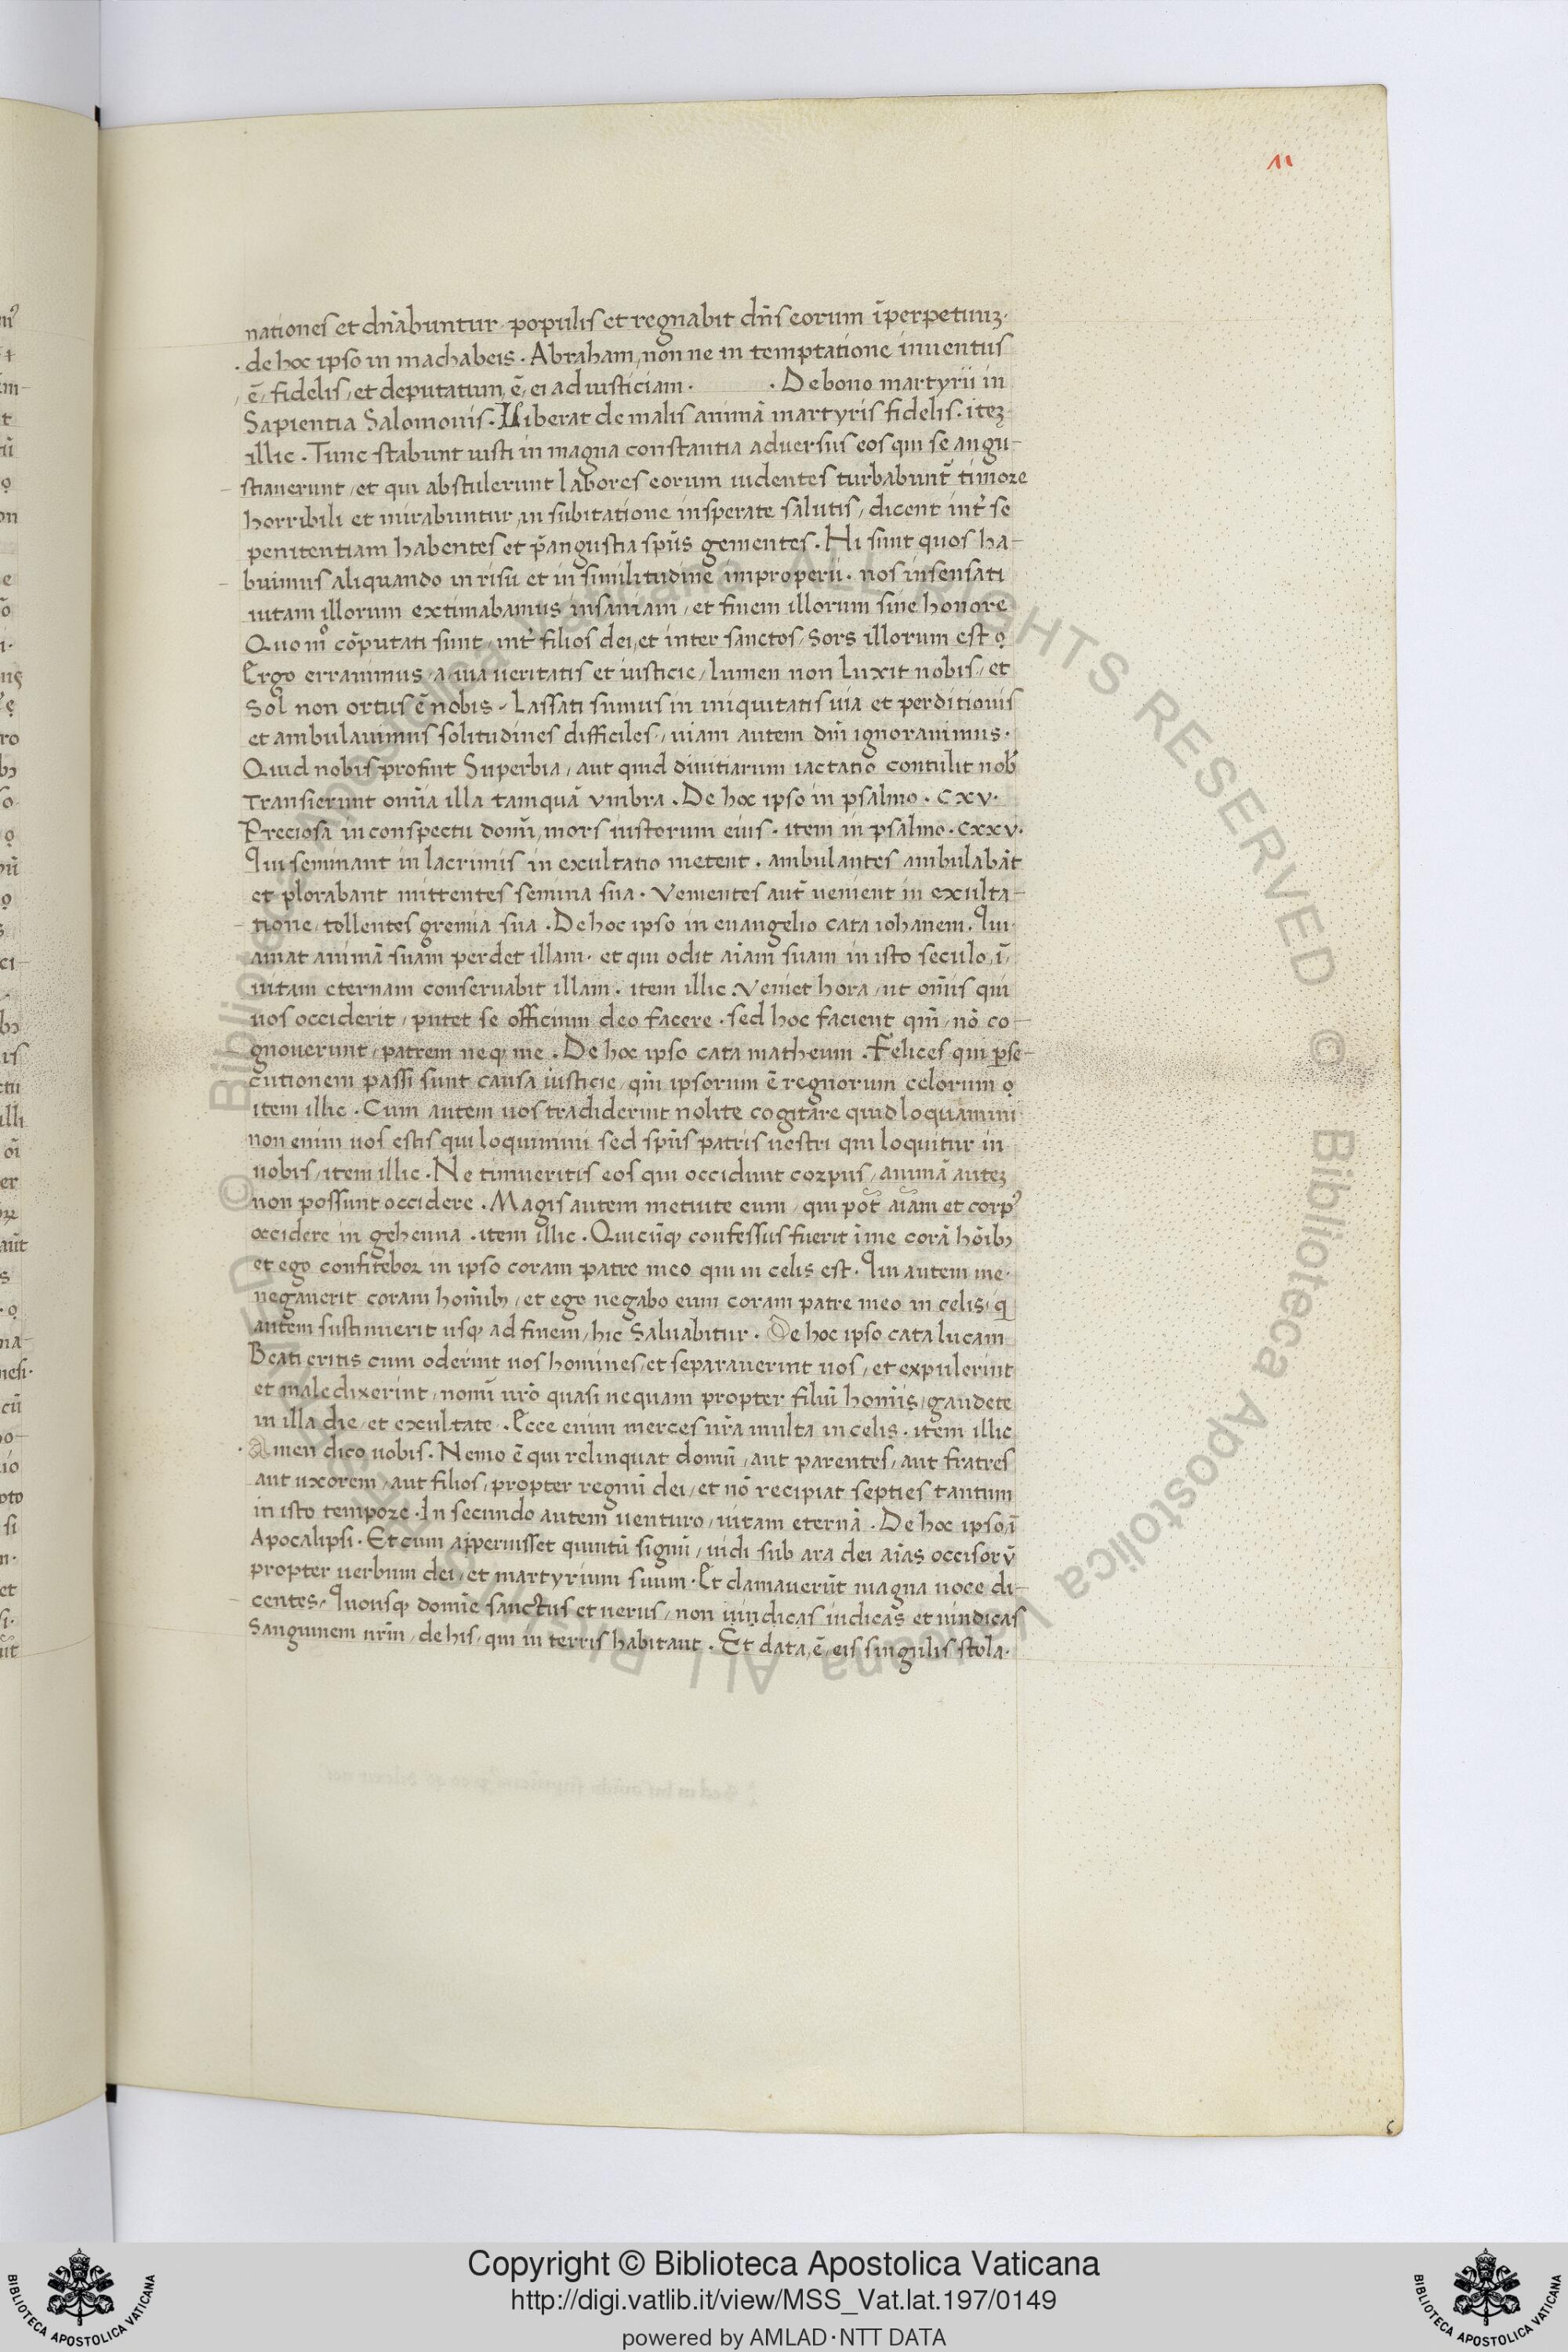 11
nationes et dn̄abuntur populis et regnabit dn̄s eorum īperpetuuꝫ.
· de hoc ipso in machabeis · Abraham, non ne in temptatione inuentus
, ē, fidelis, et deputatum, ē, ei ad iusticiam · · De bono martyrii in
Sapientia Salomonis · Liberat de malis animā martyris fidelis · iteꝫ
illic · Tunc stabunt iusti in magna constantia aduersus eos qui se angu-
stiauerunt, et qui abstulerunt labores eorum uidentes turbabunt᷑ timore
horribili et mirabuntur, in subitatione insperate salutis, dicent int᷑ se
penitentiam habentes et p̄ angustia sp̄us gementes · Hi sunt quos ha-
buimus aliquando in risu et in similitudinē improperii · nos insensati
uitam illorum extimabamus insaniam, et finem illorum sine honore
Quomͦ cōputati sunt, int᷑ filios dei, et inter sanctos, sors illorum est ꝙ
Ergo errauimus, a, uia ueritatis et iusticie, lumen non luxit nobis, et
Sol non ortus ē nobis, Lassati sumus in iniquitatis uia et perditionis
et ambulauimus solitudines difficiles, uiam autem dn̄i ignorauimus ·
Quid nobis profuit Superbia, aut quid diuitiarum iactatio contulit nob᷑
Transierunt om̄ia illa tamquā vmbra · De hoc ipso in psalmo · cxv ·
Preciosa in conspectu domī, mors iustorum eius · item in psalmo · cxxv ·
Qui seminant in lacrimis in exultatio metent · ambulantes ambulabāt
et plorabant mittentes semina sua · Venientes aut᷑ uenient in exulta-
tione, tollentes gremia sua · De hoc ipso in euangelio cata iohanem · Qui
amat animā suam perdet illam · et qui odit aīam suam in isto seculo, ī,
uitam eternam conseruabit illam · item illic · Veniet hora, ut om̄is qui
uos occiderit, putet se officium deo facere · sed hoc facient qm̄, nō co-
gnouerunt, patrem neqꝫ me · De hoc ipso cata matheum · Felices qui ꝑse-
cutionem passi sunt causa iusticie, qm̄ ipsorum ē regnorum celorum ꝙ
item illic · Cum autem uos tradiderint nolite cogitare quid loquamini
non enim uos estis qui loquimini sed sp̄us patris uestri qui loquitur in
nobis, item illic · Ne timueritis eos qui occidunt corpus, animā auteꝫ
non possunt occidere · Magis autem metuite eum, qui pōt aīam et corpꝰ
occidere in gehenna · item illic · Quicūqꝫ confessus fuerit ī me corā hōibꝫ
et ego confitebor in ipso coram patre meo qui in celis est · Qui autem me
negauerit coram homībꝫ, et ego negabo eum coram patre meo in celis, q̄
autem sustinuerit usqꝫ ad finem, hic saluabitur · De hoc ipso cata lucam
Beati eritis cum oderint uos homines, et separauerint uos, et expulerint
et maledixerint, nomī ur̄o quasi nequam propter filiū homīs, gaudete
in illa die, et exultate · Ecce enim merces ur̄a multa in celis · item illic
· Amen dico uobis · Nemo ē qui relinquat domū, aut parentes, aut fratres
aut uxorem, aut filios, propter regnū dei, et nō recipiat septies tantum
in isto tempore · In secundo autem uenturo, uitam eternā · De hoc ipso ī
Apocalipsi · Et cum apperuisset quintū signū, uidi sub ara dei aīas occisorū
propter uerbum dei, et martyrium suum · Et clamauerūt magna uoce di-
centes, Quousqꝫ domīe sanctus et uerus, non uindicas iudicas et uindicas
Sanguinem nr̄m, de his, qui in terris habitant · Et data, ē, eis singulis stola ·
Copyright © Biblioteca Apostolica Vaticana
http://digi.vatlib.it/view/MSS_Vat.lat.197/0149
powered by AMLAD·NTT DATA
BIBLIOTECA APOSTOLICA VATICANA
BIBLIOTECA APOSTOLICA VATICANA
© Biblioteca Apostolica Vaticana ALL RIGHTS RESERVED © Biblioteca Apostolica Vaticana ALL RIGHTS RESERVED